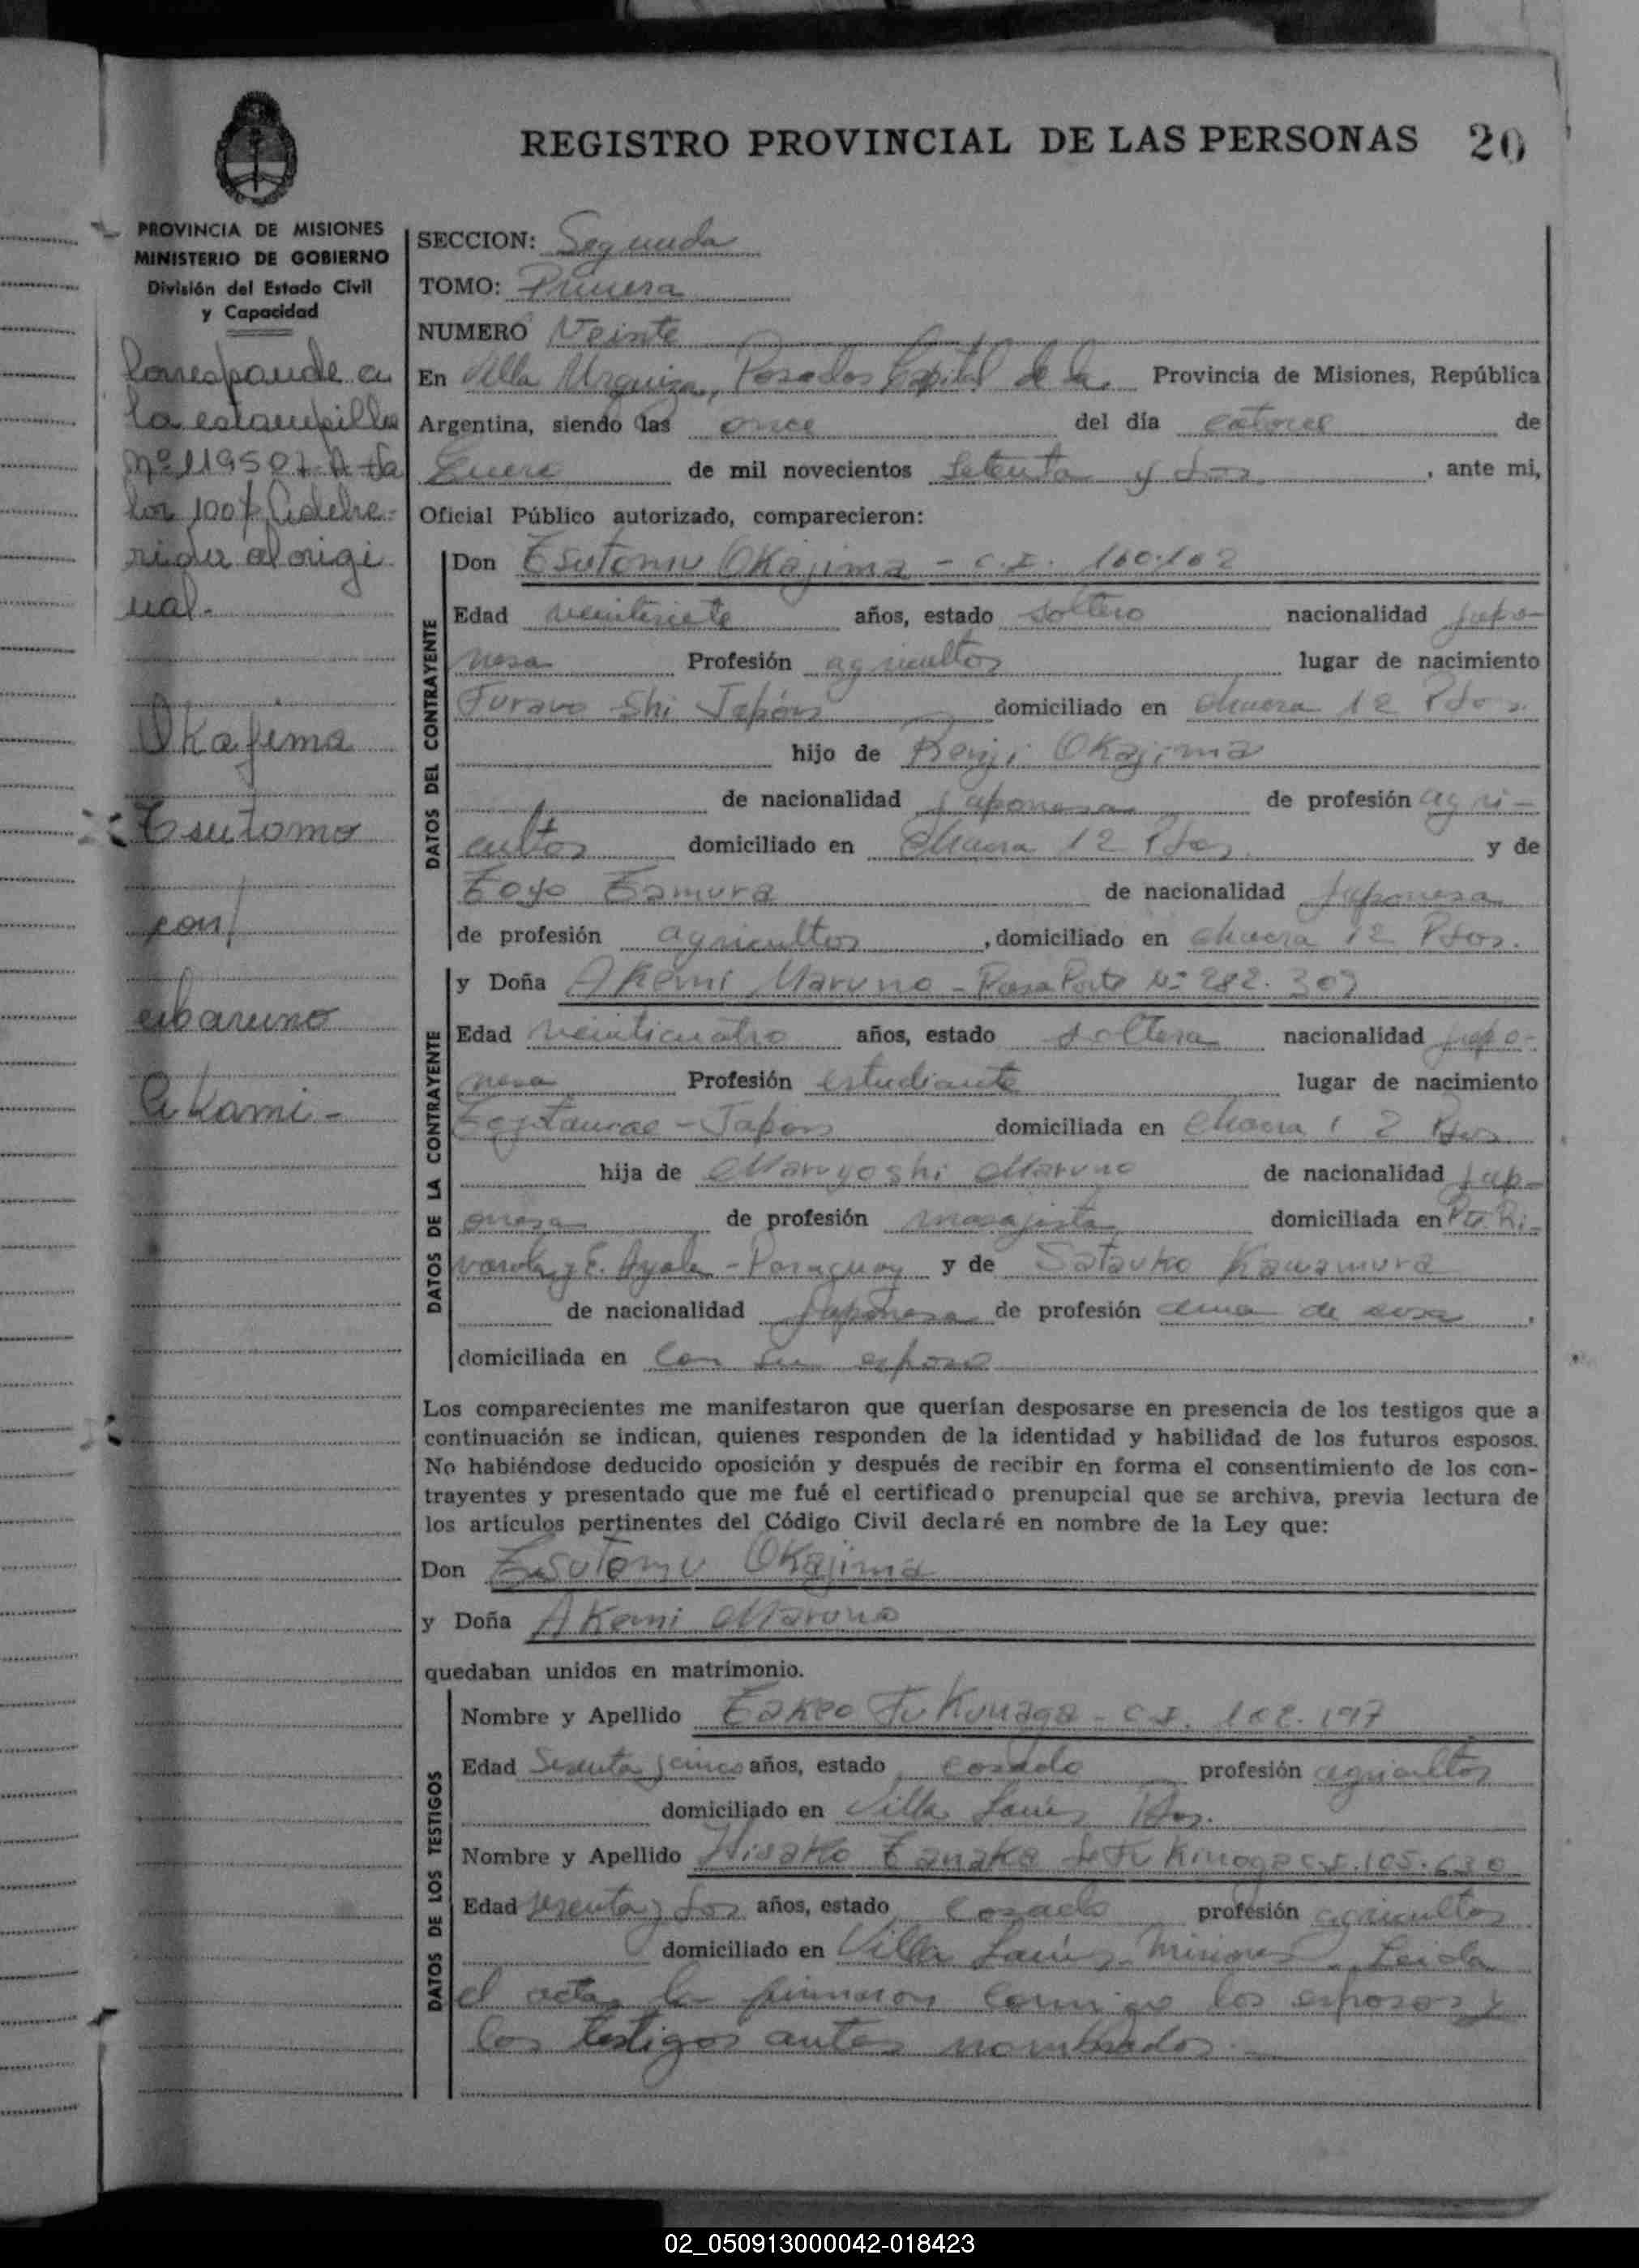 REGISTRO PROVINCIAL DE LAS PERSONAS 20
PROVINCIA DE MISIONES
MINISTERIO DE GOBIERNO
División del Estado Civil
y Capacidad
Corresponde a
la estampilla
Nº 119507-A Va
lor 100% Adehe-
rida al origi
nal.-
Okajima
Tsutomo
con/
Maruno
Akami-
SECCION: Segunda
TOMO: Primera
NUMERO Veinte
En Villa Urquiza, Posadas Capital de la Provincia de Misiones, República
Argentina, siendo las once del día catorce de
Enero de mil novecientos setenta y dos, ante mi,
Oficial Público autorizado, comparecieron:
DATOS DEL CONTRAYENTE
Don Tsutomu Okajima - C.I. 160.102
Edad veintisiete años, estado soltero nacionalidad japo-
nesa Profesión agricultor lugar de nacimiento
Furavo Shi Japón domiciliado en Chacra 12 Pdas.
hijo de Kenji Okajima
de nacionalidad japonesa de profesión agri-
cultor domiciliado en Chacra 12 Pdas. y de
Toyo Tamura de nacionalidad japonesa
de profesión agricultor, domiciliado en chacra 12 Pdas.
DATOS DE LA CONTRAYENTE
y Doña Akemi Maruno - Pasaporte Nº 282.303
Edad veinticuatro años, estado soltera nacionalidad japo-
nesa Profesión estudiante lugar de nacimiento
Japón domiciliada en Chacra 12 Pdas
hija de Maruyoshi Maruno de nacionalidad jap-
onesa de profesión masajista domiciliada en Pto. Ri-
varola y E. Ayala - Paraguay y de Satavko Kawamura
de nacionalidad japonesa de profesión ama de casa,
domiciliada en con su esposo
Los comparecientes me manifestaron que querían desposarse en presencia de los testigos que a
continuación se indican, quienes responden de la identidad y habilidad de los futuros esposos.
No habiéndose deducido oposición y después de recibir en forma el consentimiento de los con-
trayentes y presentado que me fué el certificado prenupcial que se archiva, previa lectura de
los artículos pertinentes del Código Civil declaré en nombre de la Ley que:
Don Tsutomu Okajima
y Doña Akemi Maruno
quedaban unidos en matrimonio.
DATOS DE LOS TESTIGOS
Nombre y Apellido Takeo Fukunaga - C.I. 102.197
Edad Sesenta y cinco años, estado casado profesión agricultor
domiciliado en Villa Lanús Pdas.
Nombre y Apellido Hisako Tanaka de Fukinoga C.I. 105.630
Edad sesenta y dos años, estado casada profesión agricultor
domiciliado en Villa Lanús - Misiones. Leida
el acta, la firmaron conmigo los esposos y
los testigos antes nombrados.-
02_050913000042-018423